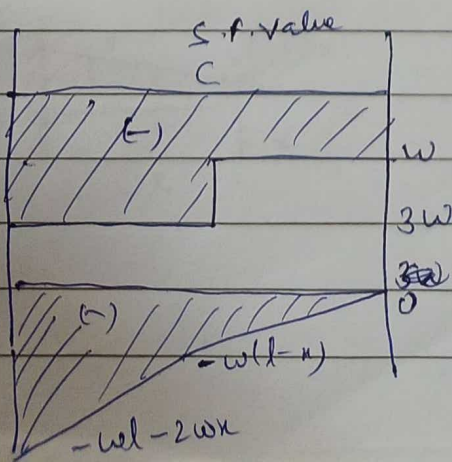 S.F. value
C
(-)
W
3W
0
(-)
-w(l-x)
-wl-2wx